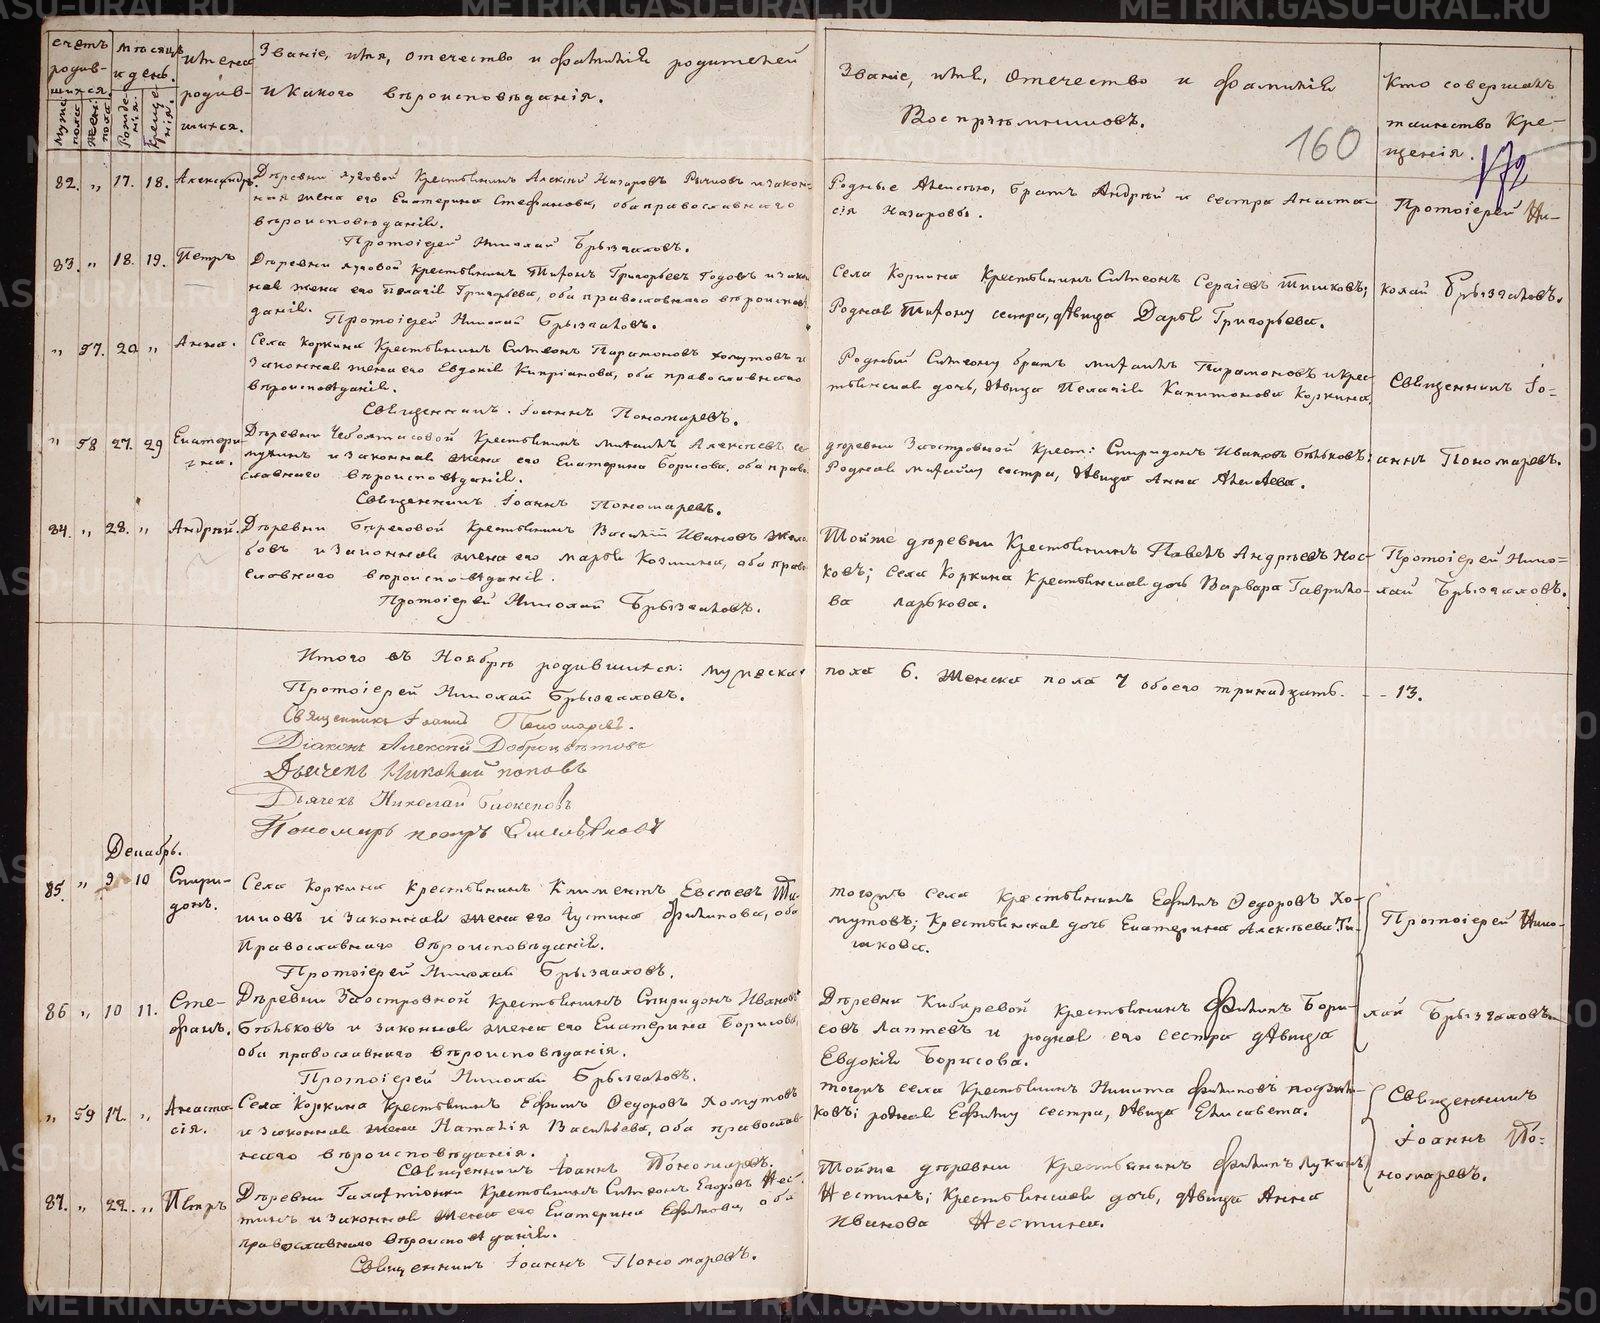 счетъ родив-
шихся.
Мужеска пола
Женска пола.
Мѣсяцъ и день.
Рожде-
нія.
Креще-
нія.
имена
родив-
шихся.
Званіе, имя, отечество и фамилія родителей
и какого вѣроисповѣданія.
Званіе, имя, отечество и фамилія
Воспріемниковъ.
Кто совершалъ
таинство Кре-
щенія.
160
172
82. „ 17. 18. Александръ. Деревни Луговой Крестьянинъ Алексѣй Назаровъ и закон-
ная жена его Екатерина Стефанова, оба православнаго
вѣроисповѣданія.
Протоіерей Николай Брызгаловъ.
Родные Алексѣю, братъ Андрей и сестра Анаста-
сія Назаровы.
Протоіерей Ни-
83. „ 18. 19. Петръ Деревни Луговой Крестьянинъ Тихонъ Григорьевъ и закон-
ная жена его Пелагія Григорьева, оба православнаго вѣроиспов-
данія.
Протоіерей Николай Брызгаловъ.
Села Коркина Крестьянинъ Симеонъ Сергіевъ Тишковъ;
Родная Тихону сестра, дѣвица Дарья Григорьева.
колай Брызгаловъ.
„ 57. 20 „ Анна. Села Коркина Крестьянинъ Симеонъ Парамоновъ Хомутовъ и
Законная жена его Евдокія Кипріанова, оба православнаго
вѣроисповѣданія.
Священникъ Іоаннъ Пономаревъ.
Родный Симеону братъ Михаилъ Парамоновъ и крес-
тьянская дочь, дѣвица Пелагія Капитонова Коркина.
Священникъ Іо-
„ 58 27. 29 Екатери-
на. Деревни Крестьянинъ Михаилъ Алексѣевъ
и законная жена его Екатерина Борисова, оба право-
славнаго вѣроисповѣданія.
Священникъ Іоаннъ Пономаревъ.
деревни Заостровной Крест: Спиридонъ Ивановъ Бѣльковъ;
Родная Михаилу сестра, дѣвица Анна Алексѣева.
аннъ Пономаревъ.
84. „ 28. „ Андрей. Деревни Береговой Крестьянинъ Василій Ивановъ
и законная жена его Марья Козмина, оба право-
славнаго вѣроисповѣданія.
Протоіерей Николай Брызгаловъ.
Тойже деревни Крестьянинъ Павелъ Андреевъ Нос-
ковъ; села Коркина Крестьянская дочь Варвара Гаврило-
ва Ларькова.
Протоіерей Нико-
лай Брызгаловъ.
Итого въ Ноябрѣ родившихся: мужеска пола 6. Женска пола 7 обоего тринадцать. - - 13.
Протоіерей Николай Брызгаловъ.
Священникъ Іоаннъ Пономаревъ.
Діаконъ Алексѣй Доброцвѣтовъ
Дьячекъ Николай Поповъ
Дьячекъ Николай
Пономарь Петръ Емельяновъ
Декабрь.
85. „ 9 10 Спири-
донъ. Села Коркина Крестьянинъ Климентъ Евсѣевъ Ти-
шковъ и законная жена его Іустина Филипова, оба
Православнаго вѣроисповѣданія.
Протоіерей Николай Брызгаловъ.
тогожъ села Крестьянинъ Ефимъ Ѳедоровъ Хо-
мутовъ; Крестьянская дочь Екатерина Алексѣева Ти-
шкова.
Протоіерей Нико-
86 „ 10 11. Сте-
фанъ. Деревни Заостровной крестьянинъ Спиридонъ Ивановъ
Бѣльковъ и законная жена его Екатерина Борисова,
оба православнаго вѣроисповѣданія.
Протоіерей Николай Брызгаловъ.
Деревни Кибиревой крестьянинъ Филипъ Бори-
совъ Лаптевъ и родная его сестра дѣвица
Евдокія Борисова.
лай Брызгаловъ
„ 59 17. „ Анаста-
сія. Села Коркина Крестьянинъ Ефимъ Ѳедоровъ Хомутовъ
и законная жена Наталія Васильева, оба православ-
наго вѣроисповѣданія.
Священникъ Іоаннъ Пономаревъ.
тогожъ села Крестьянинъ Никита Филиповъ
ковъ; родная Ефиму сестра, дѣвица Елисавета.
Священникъ
Іоаннъ По-
87. „ 22. „ Петръ Деревни Крестьянинъ Симеонъ Егоровъ Нес-
тинъ и законная жена его Екатерина Ефимова, оба
православнаго вѣроисповѣданія.
Священникъ Іоаннъ Пономаревъ.
Тойже деревни Крестьянинъ Филипъ Лукинъ
Нестинъ; Крестьянская дочь, дѣвица Анна
Иванова Нестина.
номаревъ.
METRIKI.GASU-URAL.RU